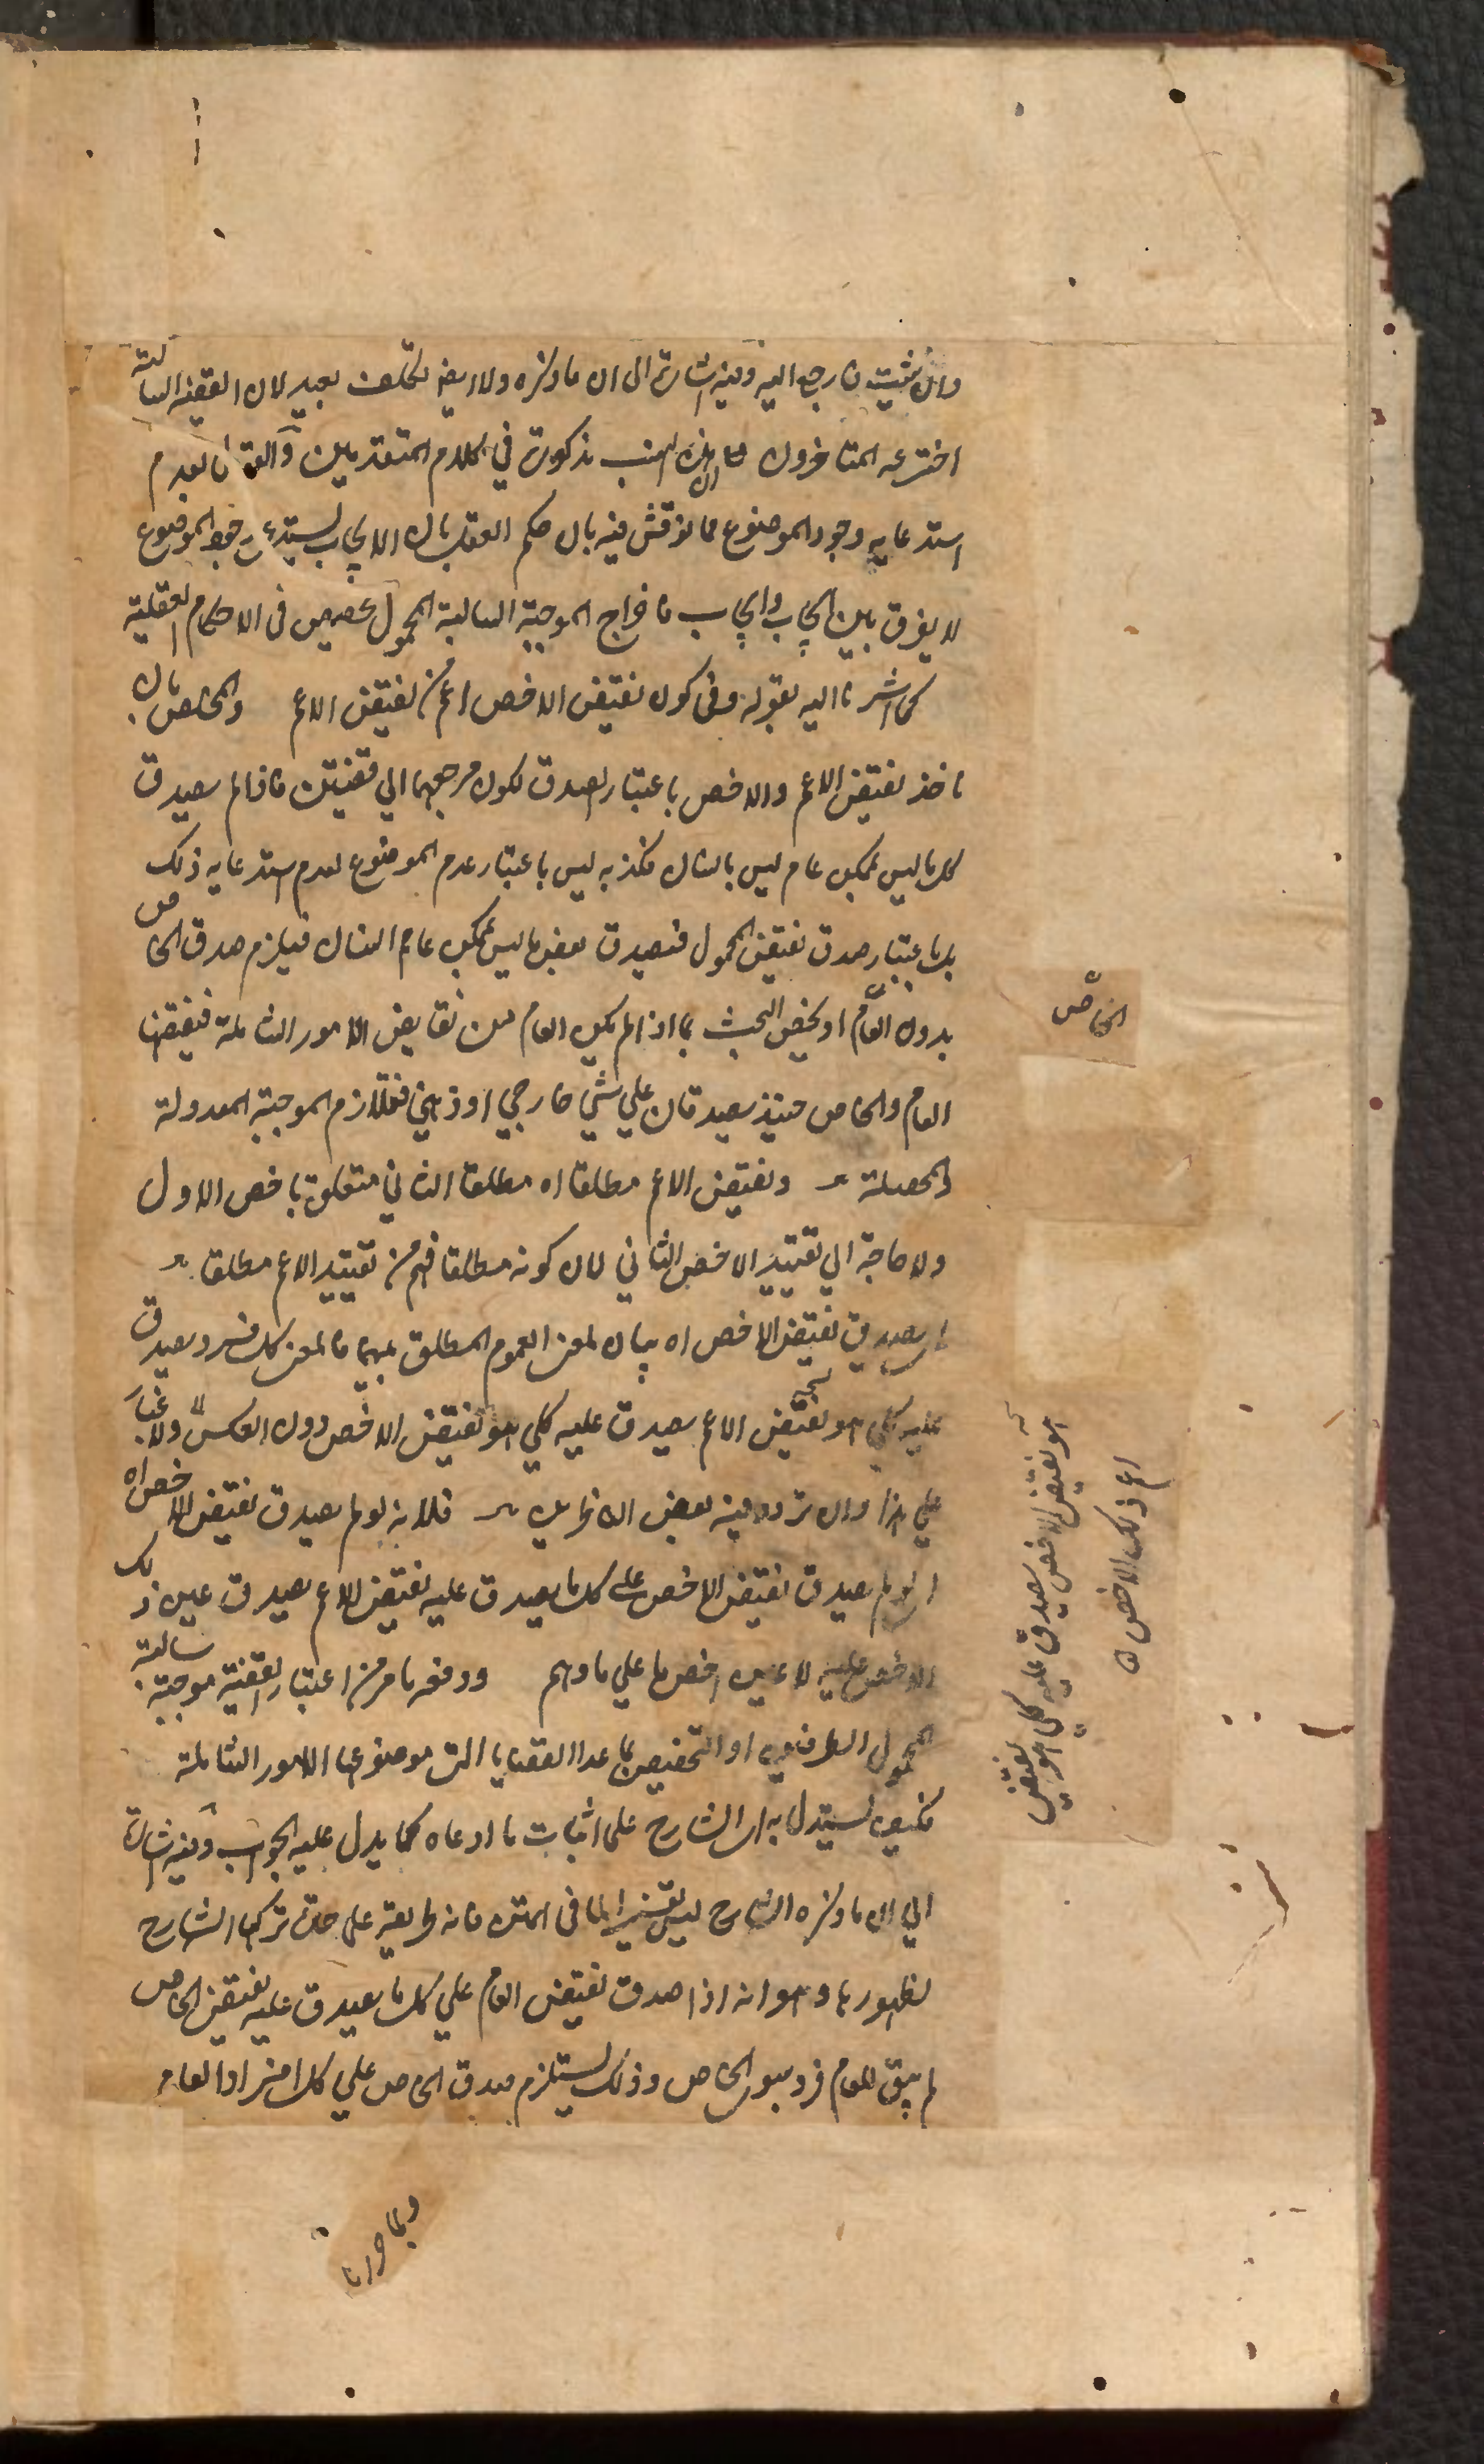 وان شئت فارجع اليه وفيه اشارة الى ان ما ذكره ولا ايضا تكلف بعيد لان القضية السالبة
اخترعه المتاخرون مع ان هذه النسب مذكورة في كلام المتقدمين وآلقول بعدم
استدعايه وجود الموضوع مما نوقش فيه بان حكم العقل بان الايجاب يستدعي وجود الموضوع
لا يفرق بين ايجاب وايجاب فاخراج الموجبة السالبة المحمول تخصيص في الاحكام العقلية
كما اشرنا اليه بقوله وفي كون نقيض الاخص اعم من نقيض الاعم والمخلص بان
ناخذ نقيض الاعم والاخص باعتبار الصدق لكون مرجعهما الي قضيتين فاذا لم يصدق
كل ما ليس بممكن عام ليس بانسان فكذبه ليس باعتبار عدم الموضوع لعدم استدعايه ذلك
بل باعتبار صدق نقيض المحمول فيصدق بعض ما ليس بممكن عام انسان فيلزم صدق الخاص
بدون العام او يخص البحث بما اذا لم يكن العام من نقايض الامور الشاملة فنقيضا
العام والخاص حينئذ يصدقان علي شي خارجي او ذهني فتلازم الموجبة المعدولة
والمحصلة ونقيض الاعم مطلقا اه مطلقا الثاني متعلق باخص الاول
ولا حاجة الي تقييد الاخص الثاني لان كونه مطلقا فهم من تقييد الاعم مطلقا
اي يصدق نقيض الاخص اه بيان لمعنى العموم المطلق بينهما فالمعنى كل فرد يصدق
عليه كلي هو نقيض الاعم يصدق عليه كلي هو نقيض الاخص دون العكس ولا غبار
علي هذا وان تردد فيه بعض الاذكياء فلانه لو لم يصدق نقيض الاخص اه
اي لو لم يصدق نقيض الاخص على كل ما يصدق عليه نقيض الاعم يصدق عين ذلك
الاخص عليه لا عين اخص ما علي ما وهم ودفعه ما مر من اعتبار القضية موجبة سالبة
المحمول الطرفين او التخصيص بما عدا القضايا التي موضوعها الامور الشاملة
فكيف يستدل به اي الشارح على اثبات ما ادعاه كما يدل عليه الجواب وفيه اشارة
الي ان ما ذكره الشارح ليس تفسيرا لما في المتن فانه طريقة على حدة تركها الشارح
لظهورها وهو انه اذا صدق نقيض العام علي كل ما يصدق عليه نقيض الخاص
لم يبق للعام فرد سوى الخاص وذلك يستلزم صدق الخاص علي كل افراد العام
الخاص
هو نقيض الاخص يصدق عليه كلي هو عين نقيض
اعم ذلك الاخص